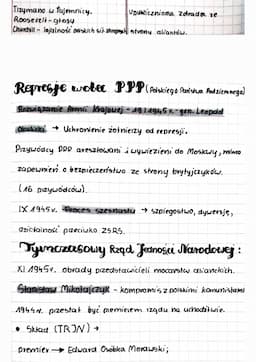 Trzymano w tajemnicy.
Roosevelt - głosy
Churchill - lojalność polskich sił zbrojnych
Uzależnienie zdrada ze
strony aliantów.
Represje wobec PPP (Polskiego Państwa Podziemnego)
Rozwiązanie Armii Krajowej - 19 I 1945 r. - gen. Leopold
Okulicki → Uchronienie żołnierzy od represji.
Przywódcy PPP aresztowani i wywiezieni do Moskwy, mimo
zapewnień o bezpieczeństwo ze strony brytyjczyków.
(16 przywódców).
1945r. Proces szesnastu → szpiegostwo, dywersję,
działalność przeciwko ZSRS.
Tymczasowy Rząd Jedności Narodowej:
1945r. obrady przedstawicieli mocarstw alianckich.
Stanisław Mikołajczyk - kompromis z polskimi komunistami
1944r. przestał być premierem rządu na uchodźtwie.
• Skład (TRJN) →
premier → Edward Osóbka Morawski;